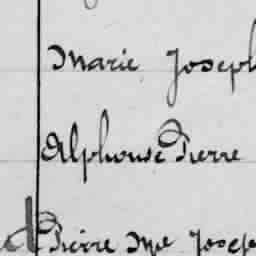 Marie Joseph
Alphonse Pierre
Pierre Me Josep